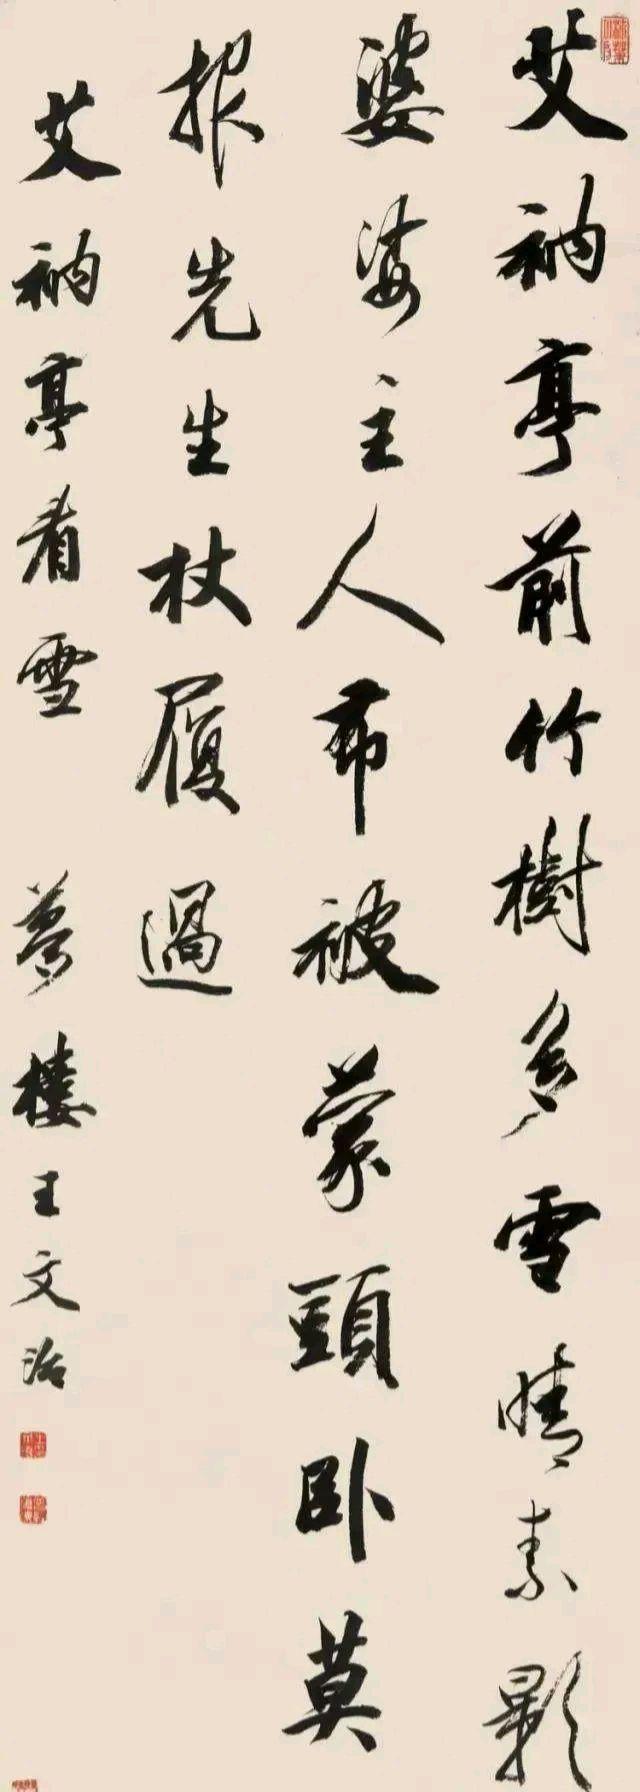 艾衲亭前竹樹多雪晴素影
婆娑主人布被蒙頭卧莫
報先生杖履過
艾衲亭看雪 夢樓王文治